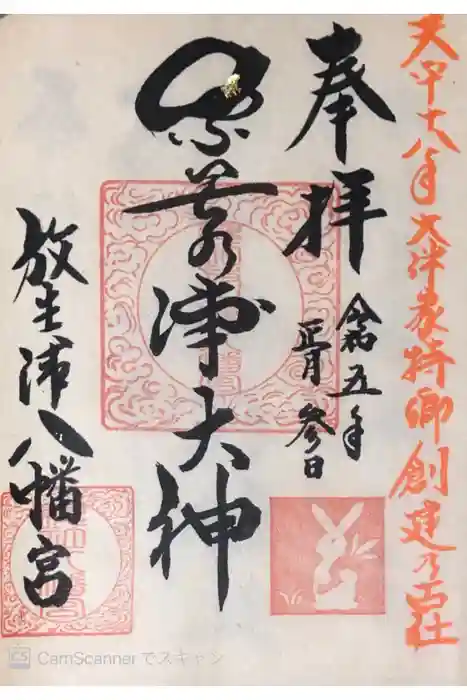 天平十八年大伴家持卿創建乃古社
奉拝
令和五年
正月参日
大神
放生津八幡宮
CS CamScanner でスキャン